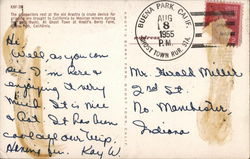 The prospectors rest at the old Arastra or crude device for
are brought to California by Mexican miners during
Ghost Town, Knott's Berry Farm,
Park, California.
BUENA PARK, CALIF.
AUG
8
1955
P.M.
GHOST TOWN RUR. STA.
Hi,
Well as you can
see I'm here &
enjoying it very
much. It is nice
& hot. It has been
cool all our trip.
Having fun. Kay W
Mr. Harold Miller
2nd St.
No. Manchester,
Indiana